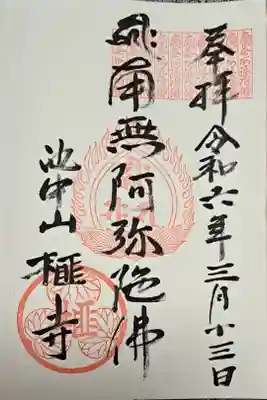 奉拝 令和六年三月廿三日
南無阿弥陀佛
池中山 榧寺